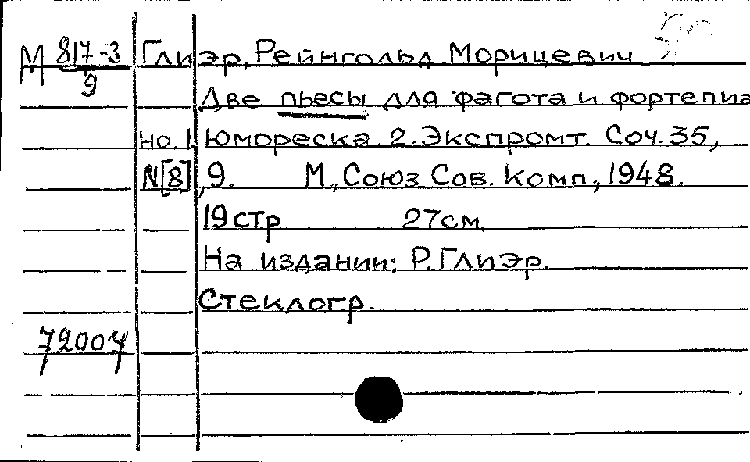 М 817-3/9 Глиэр, Рейнгольд Морицевич
Две пьесы для фагота и фортепиа
но. 1. Юмореска 2. Экспромт. Соч. 35,
N[8], 9. М., Союз Сов. Комп., 1948.
19 стр 27 см.
На издании: Р. Глиэр.
Стеклогр.
72004